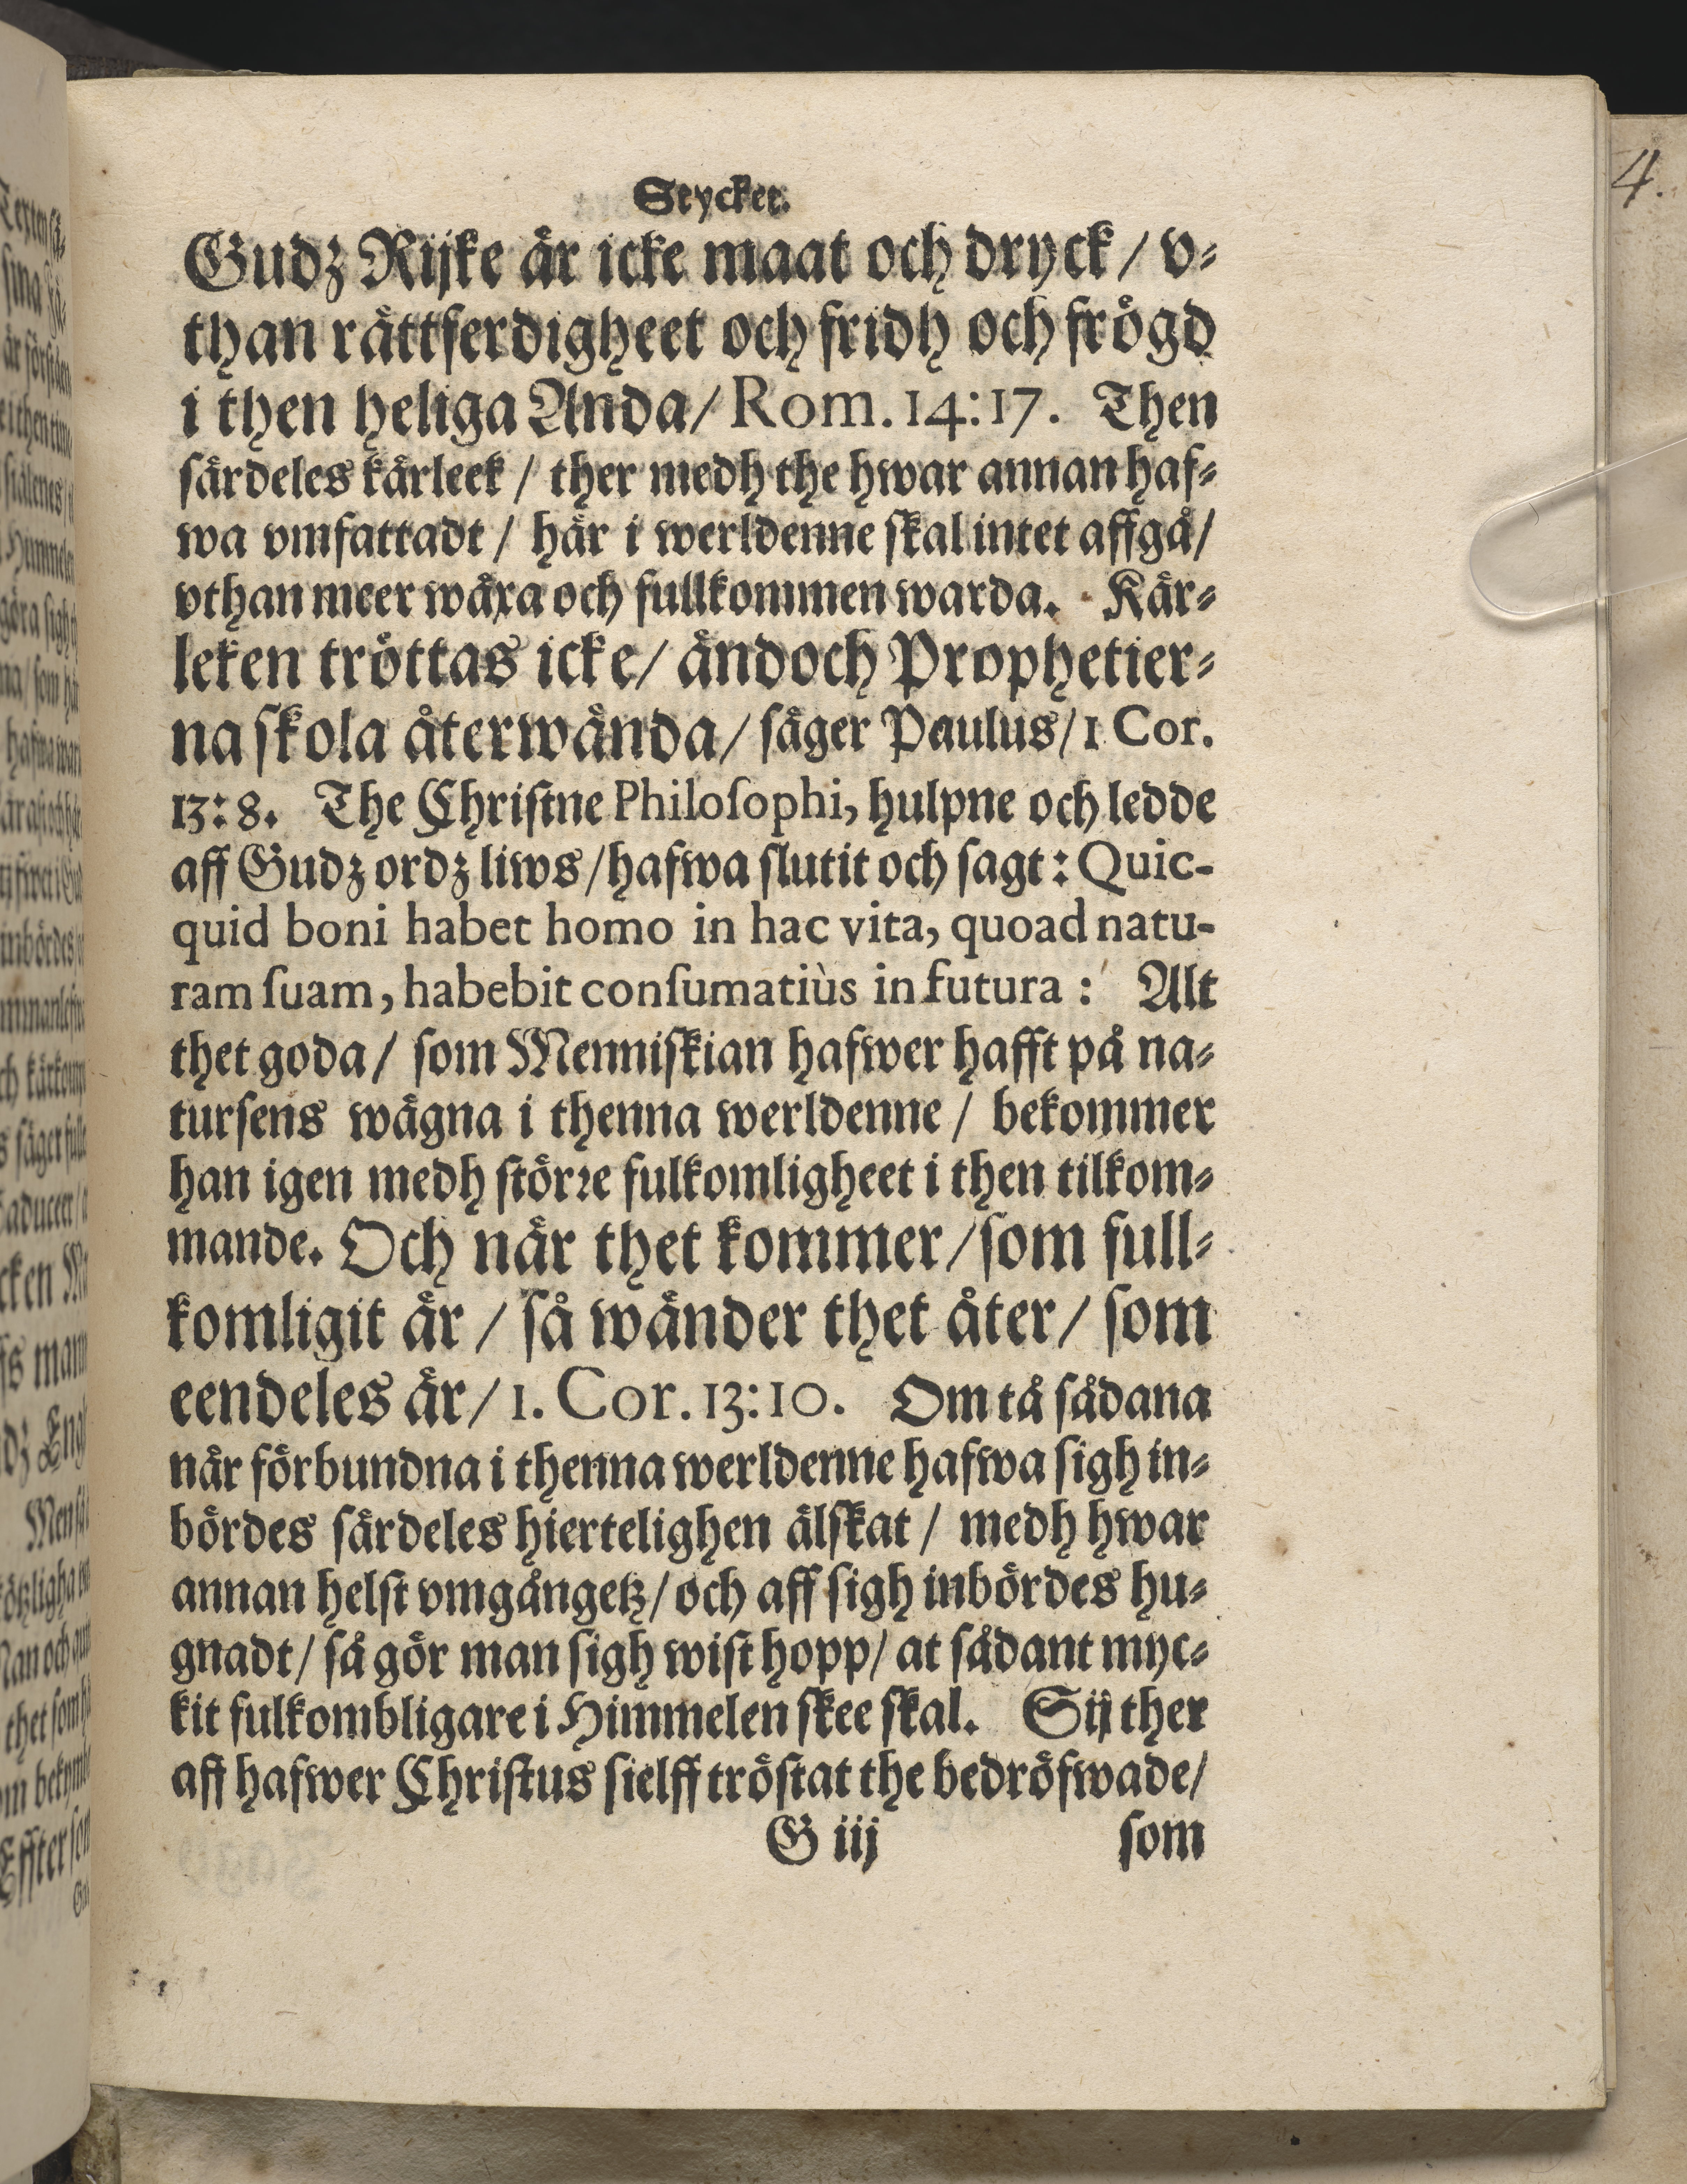 Stycket.
Gudz Rijke är icke maat och dryck / v⸗
than rättferdigheet och fridh och frögd
i then heliga Anda/ Rom. 14:17. Then
särdeles kärleek / ther medh the hwar annan haf⸗
wa vmfattadt / här i werldenne ſkal intet affgå/
vthan meer wäxa och fullkommen warda. Kär⸗
leken tröttas icke/ ändoch Prophetier⸗
na ſkola återwända/ ſäger Paulus/ 1 Cor.
13:8. The Chriſtne Philoſophi, hulpne och ledde
aff Gudz ordz liws/ hafwa ſlutit och ſagt: Quic-
quid boni habet homo in hac vita, quoad natu-
ram ſuam, habebit conſumatiùs in futura: Alt
thet goda/ ſom Menniſkian hafwer hafft på na⸗
turſens wägna i thenna werldenne / bekommer
han igen medh ſtörꝛe fulkomligheet i then tilkom⸗
mande. Och när thet kommer/ ſom full⸗
komligit är / ſå wänder thet åter/ ſom
eendeles är/ 1. Cor. 13:10. Om tå ſådana
när förbundna i thenna werldenne hafwa ſigh in⸗
bördes ſärdeles hiertelighen älſkat / medh hwar
annan helſt vmgångetz/ och aff ſigh inbördes hu⸗
gnadt/ ſå gör man ſigh wiſt hopp/ at ſådant myc⸗
kit fulkombligare i Himmelen ſkee ſkal. Sij ther
aff hafwer Chriſtus ſielff tröſtat the bedröfwade/
G iij ſom
4.